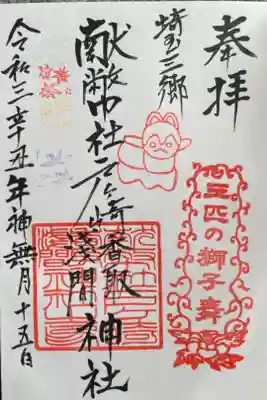 奉拝
埼玉三郷
三匹の獅子舞
献幣中社
香取
浅間
神社
令和三辛丑年神無月十五日